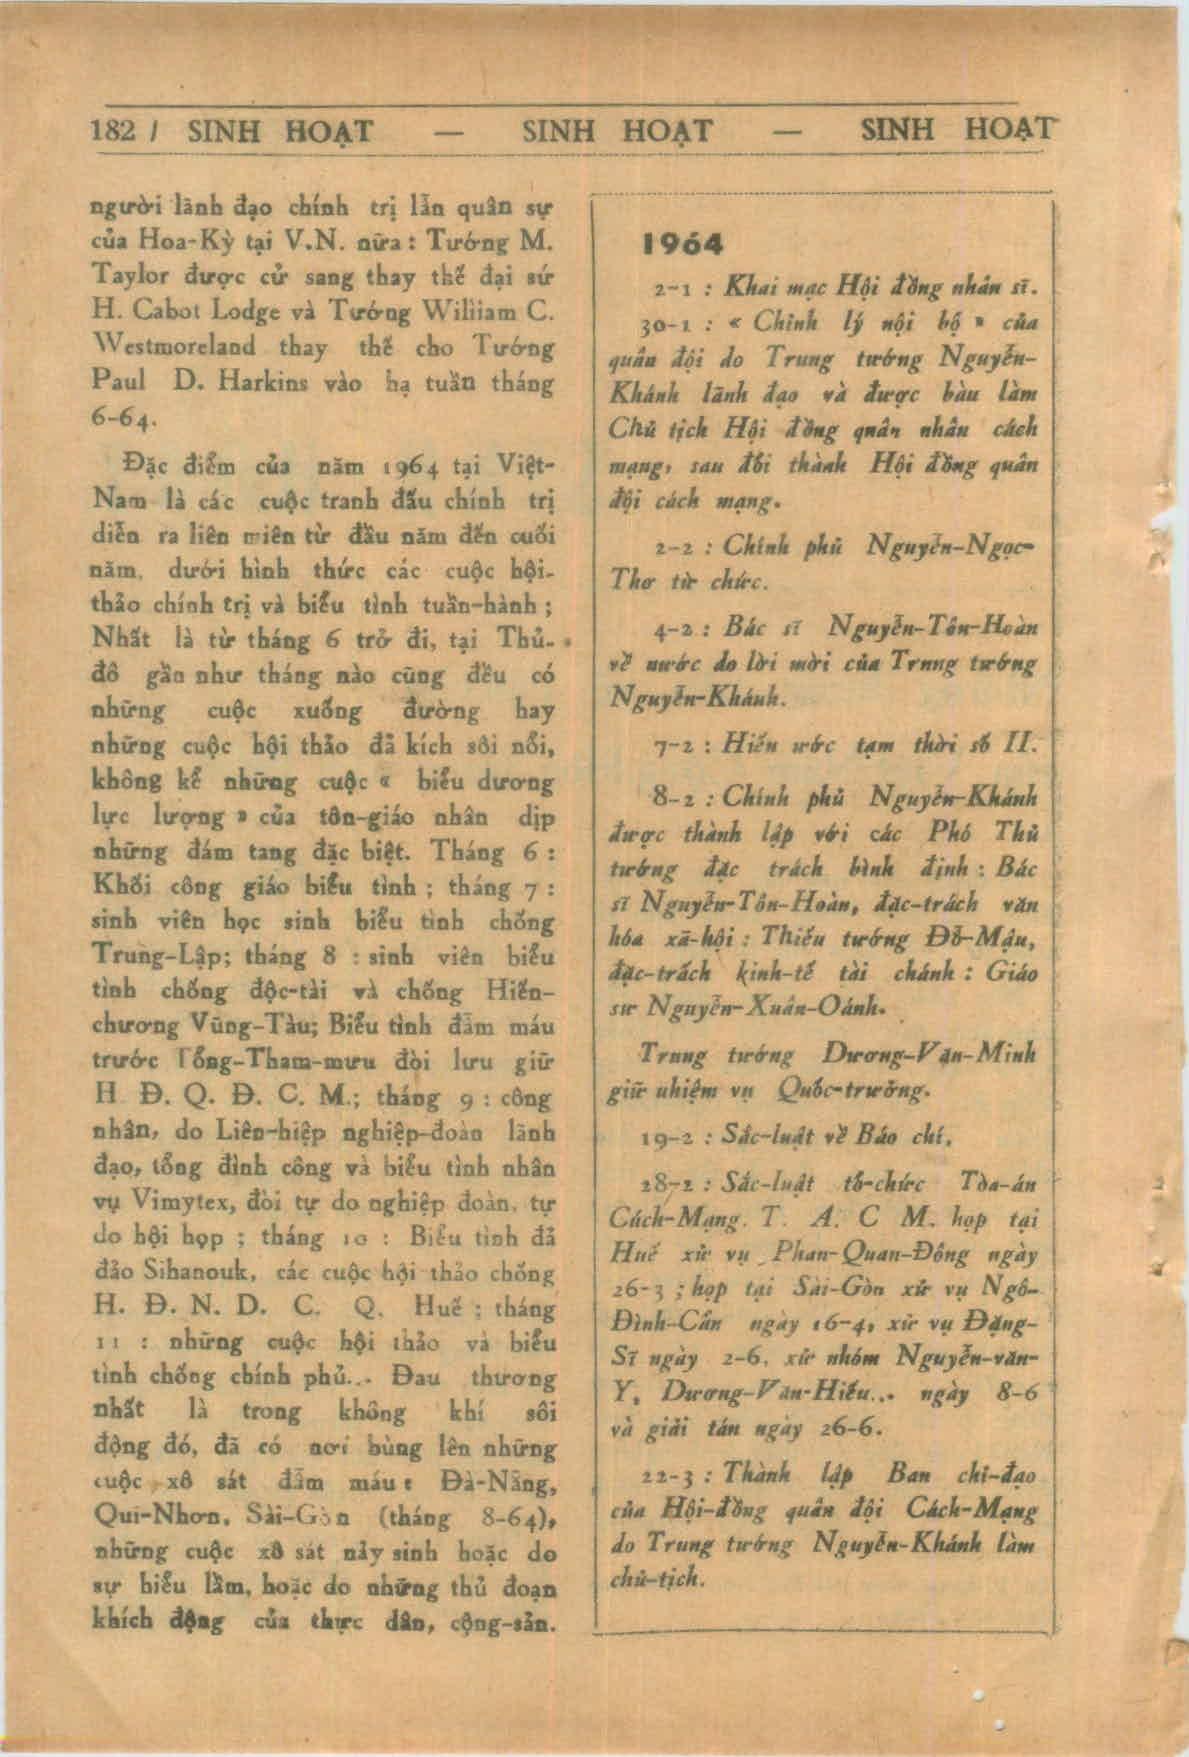 182 / SINH HOẠT — SINH HOẠT — SINH HOẠT
người lãnh đạo chính trị lẫn quân sự
của Hoa-Kỳ tại V.N. nữa : Tướng M.
Taylor được cử sang thay thế đại sứ
H. Cabot Lodge và Tướng Wiliiam C.
Westmoreland thay thế cho Tướng
Paul D. Harkins vào hạ tuần tháng
6-64.
Đặc điểm của năm 1964 tại Việt-
Nam là các cuộc tranh đấu chính trị
diễn ra liên miên từ đầu năm đến cuối
năm, dưới hình thức các cuộc hội-
thảo chính trị và biểu tình tuần-hành ;
Nhất là từ tháng 6 trở đi, tại Thủ-
đô gần như tháng nào cũng đều có
những cuộc xuống đường hay
những cuộc hội thảo đả kích sôi nổi,
không kể những cuộc « biểu dương
lực lượng » của tôn-giáo nhân dịp
những đám tang đặc biệt. Tháng 6 :
Khối công giáo biểu tình ; tháng 7 :
sinh viên học sinh biểu tình chống
Trung-Lập; tháng 8 : sinh viên biểu
tình chống độc-tài và chống Hiến-
chương Vũng-Tàu; Biểu tình đẫm máu
trước Tổng-Tham-mưu đòi lưu giữ
H Đ. Q. Đ. C. M.; tháng 9 : công
nhân, do Liên-hiệp nghiệp-đoàn lãnh
đạo, tổng đình công và biểu tình nhân
vụ Vimytex, đòi tự do nghiệp đoàn, tự
do hội họp ; tháng 10 : Biểu tình đả
đảo Sihanouk, các cuộc hội thảo chống
H. Đ. N. D. C. Q. Huế ; tháng
11 : những cuộc hội thảo và biểu
tình chống chính phủ... Đau thương
nhất là trong không khí sôi
động đó, đã có nơi bùng lên những
cuộc xô sát đẫm máu : Đà-Nẵng,
Qui-Nhơn, Sài-Gòn (tháng 8-64),
những cuộc xô sát nảy sinh hoặc do
sự hiểu lầm, hoặc do những thủ đoạn
khích động của thực dân, cộng-sản.
1964
2-1 : Khai mạc Hội đồng nhân sĩ.
30-1 : « Chỉnh lý nội bộ » của
quân đội do Trung tướng Nguyễn-
Khánh lãnh đạo và được bàu làm
Chủ tịch Hội đồng quân nhân cách
mạng, sau đổi thành Hội đồng quân
đội cách mạng.
2-2 : Chính phủ Nguyễn-Ngọc-
Thơ từ chức.
4-2 : Bác sĩ Nguyễn-Tôn-Hoàn
về nước do lời mời của Trung tướng
Nguyễn-Khánh.
7-2 : Hiến ước tạm thời số II.
8-2 : Chính phủ Nguyễn-Khánh
được thành lập với các Phó Thủ
tướng đặc trách bình định : Bác
sĩ Nguyễn-Tôn-Hoàn, đặc-trách văn
hóa xã-hội : Thiếu tướng Đỗ-Mậu,
đặc-trách kinh-tế tài chánh : Giáo
sư Nguyễn-Xuân-Oánh.
Trung tướng Dương-Văn-Minh
giữ nhiệm vụ Quốc-trưởng.
19-2 : Sắc-luật về Báo chí.
28-2 : Sắc-luật tổ-chức Tòa-án
Cách-Mạng. T. A. C M. họp tại
Huế xử vụ Phan-Quan-Đông ngày
26-3 ; họp tại Sài-Gòn xử vụ Ngô-
Đình-Cẩn ngày 16-4, xử vụ Đặng-
Sĩ ngày 2-6, xử nhóm Nguyễn-văn-
Y, Dương-Văn-Hiếu... ngày 8-6
và giải tán ngày 26-6.
22-3 : Thành lập Ban chỉ-đạo
của Hội-đồng quân đội Cách-Mạng
do Trung tướng Nguyễn-Khánh làm
chủ-tịch.